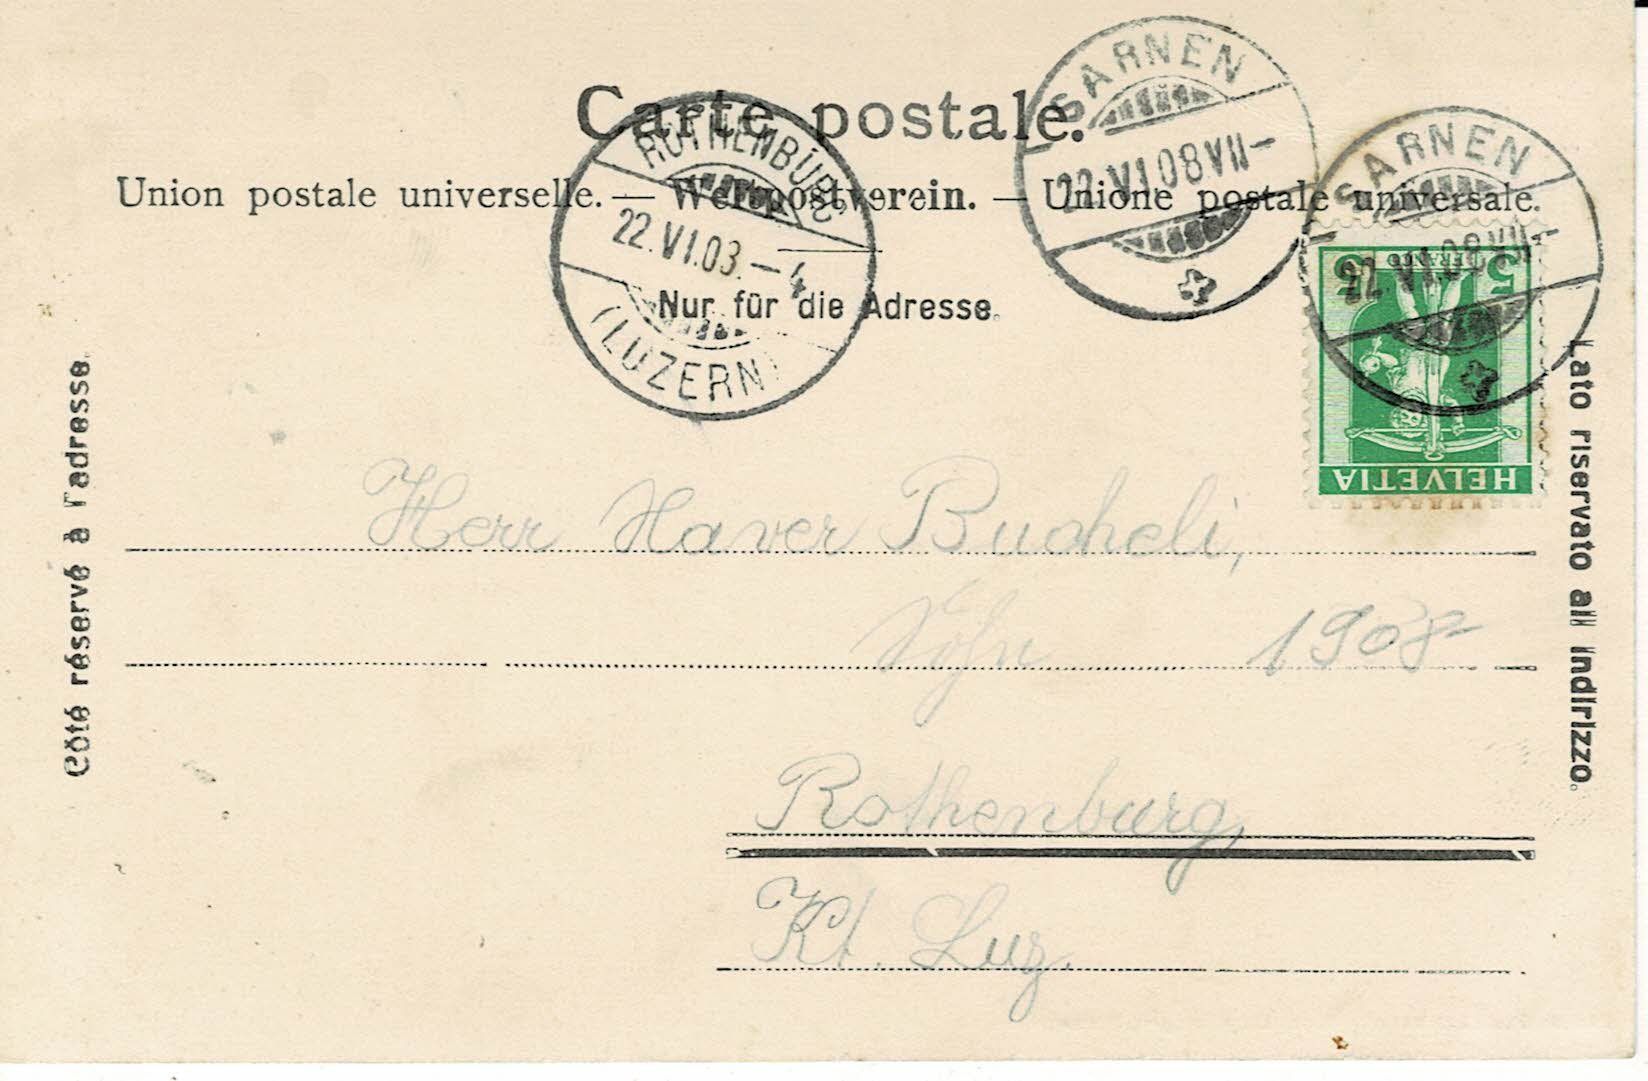 Carte postale.
Union postale universelle. — Weltpostverein. — Unione postale universale.
Nur für die Adresse.
Côté réservé à l'adresse.
Lato riservato all indirizzo.
ROTHENBURG
22.VI.03.–4
(LUZERN)
SARNEN
22.VI.08VII–
SARNEN
22.VI.08VII–
5
FRANCO
5
HELVETIA
Herr Xaver Bucheli,
Sohn
1908
Rothenburg,
Kt. Luz.